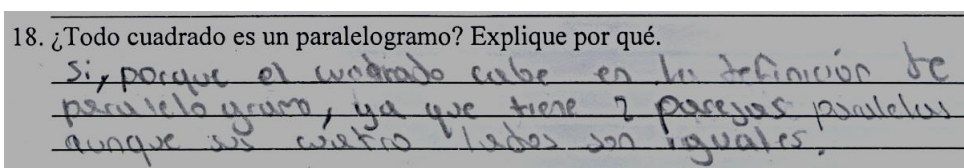 18. ¿Todo cuadrado es un paralelogramo? Explique por qué.
Si, porque el cuadrado cabe en la definición de
paralelogramo, ya que tiene 2 parejas paralelas
aunque sus cuatro lados son iguales.